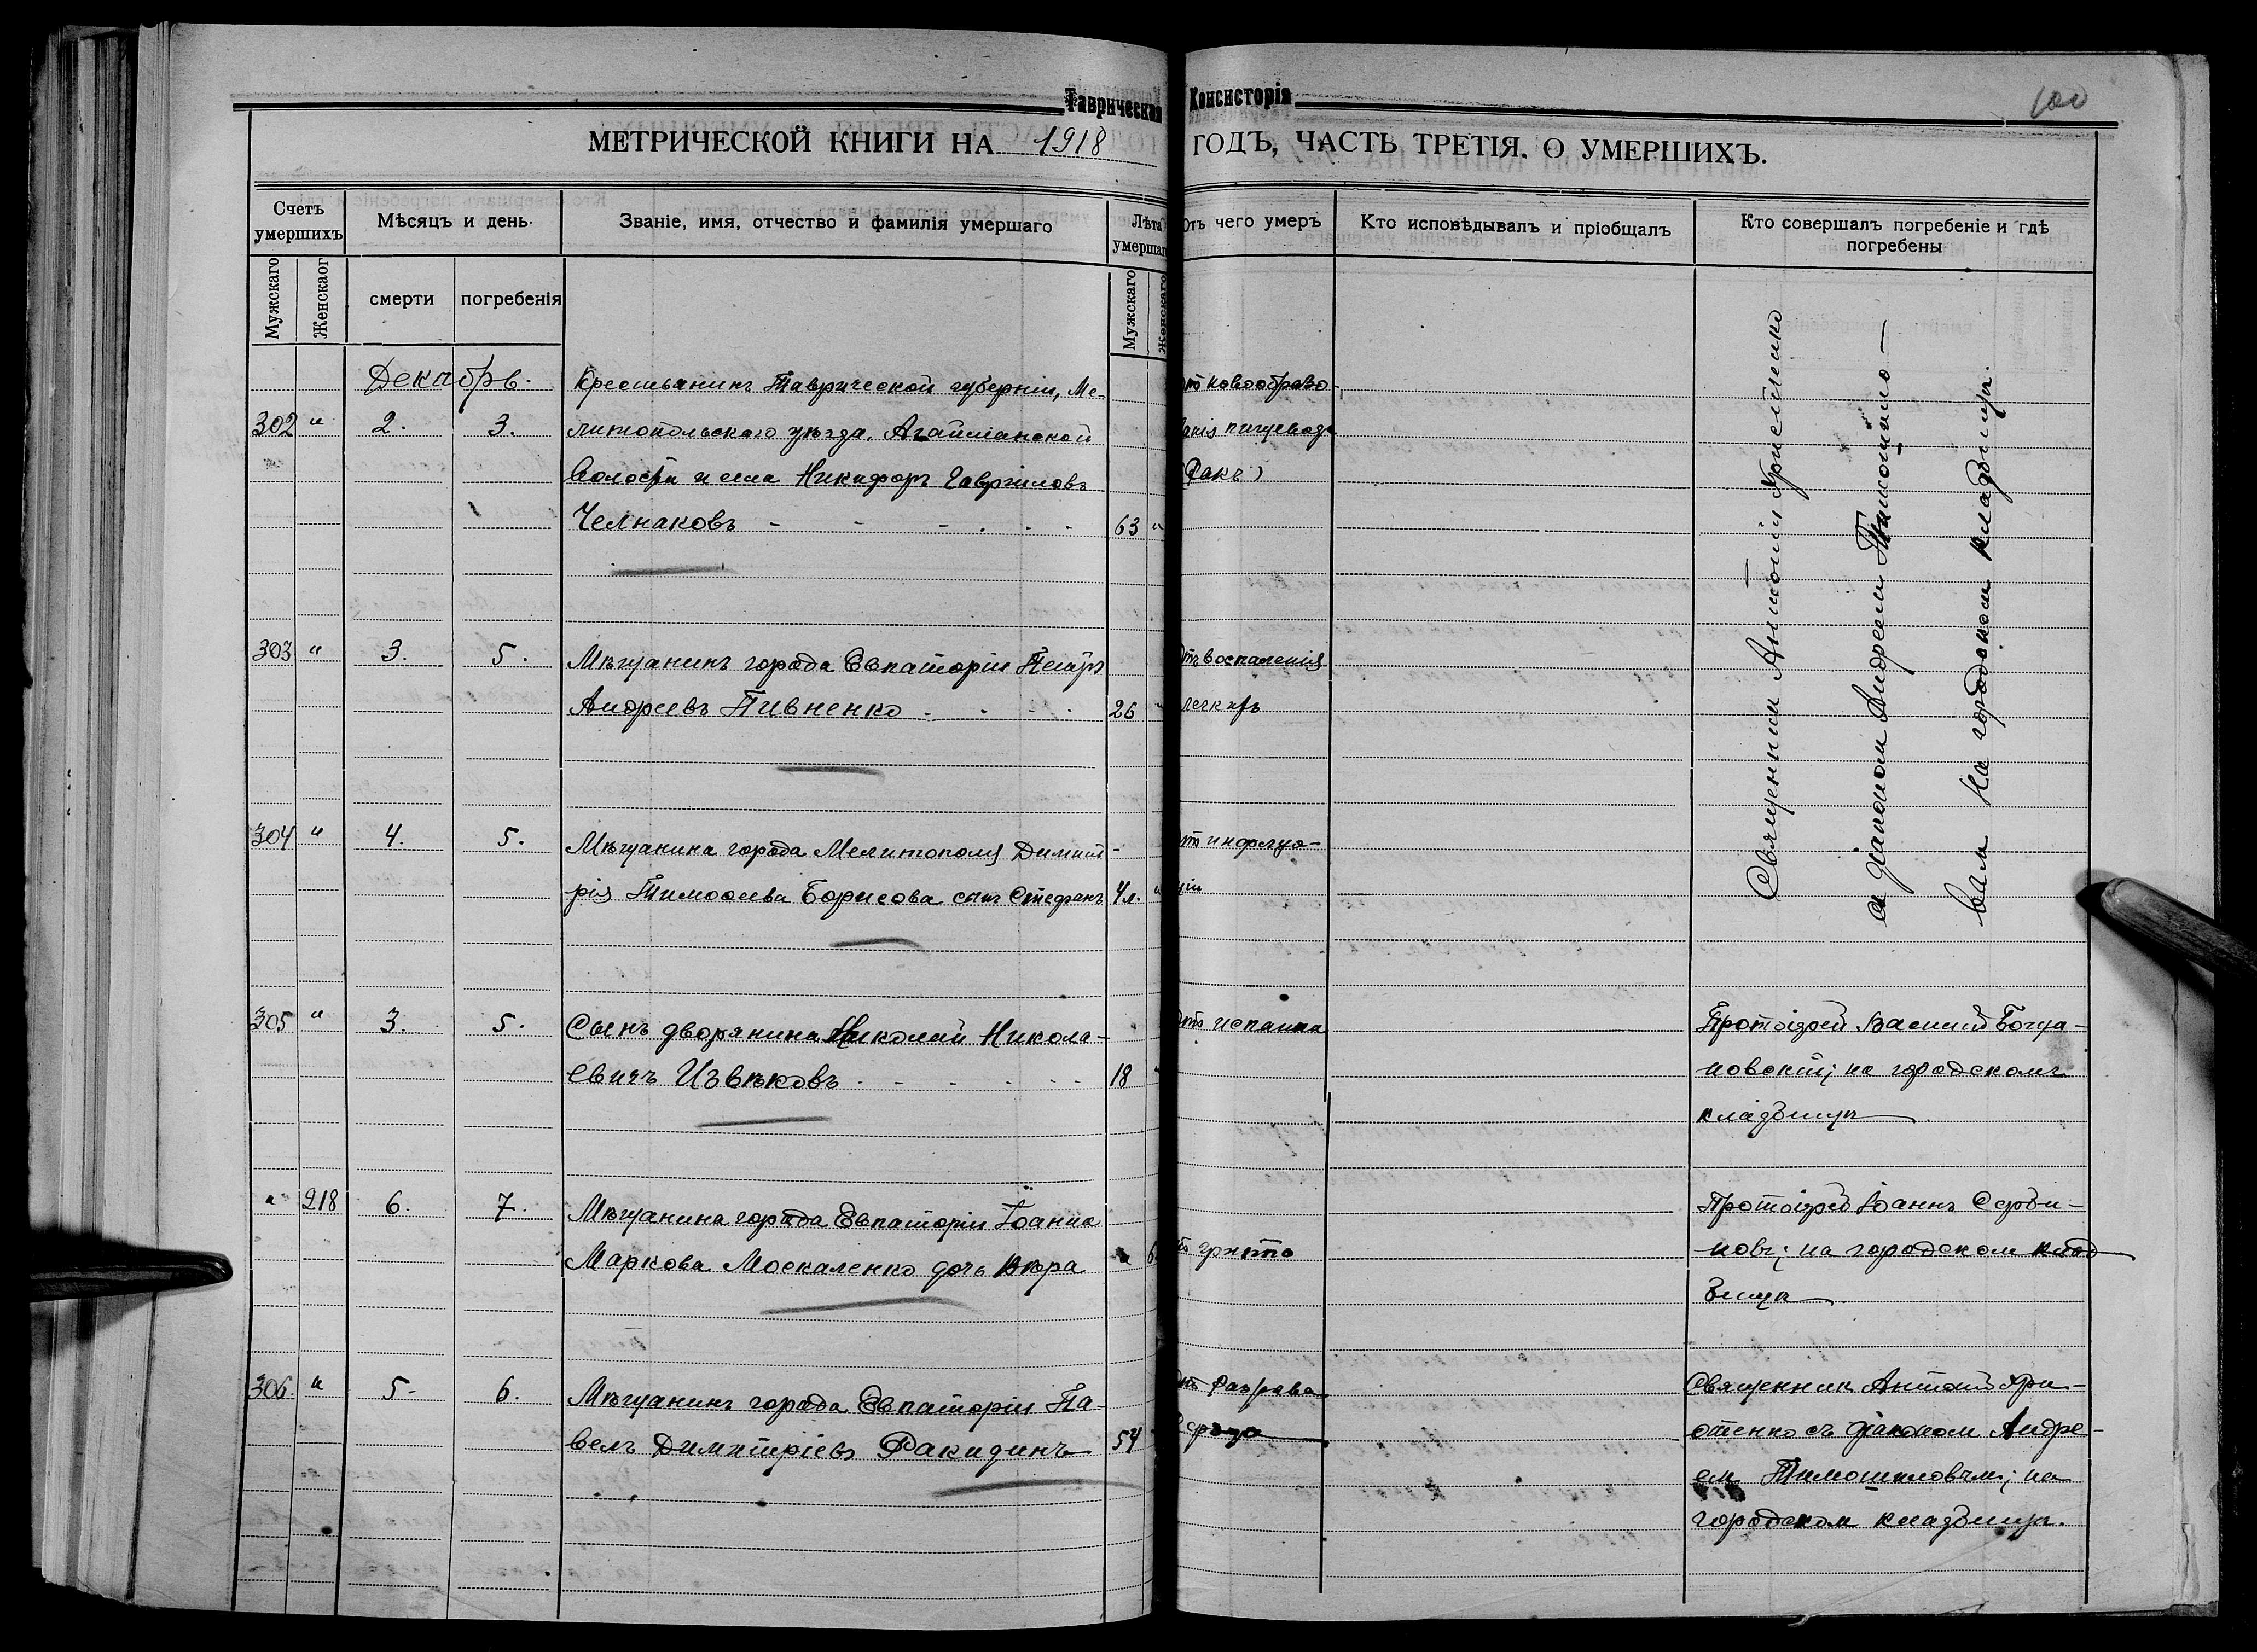 Таврическая Консисторія
100
МЕТРИЧЕСКОЙ КНИГИ НА 1918 ГОДЪ, ЧАСТЬ ТРЕТІЯ. О УМЕРШИХЪ.
Счетъ умершихъ
Мѣсяцъ и день.
Званіе, имя, отчество и фамилія умершаго
Лѣта умершаго
Отъ чего умеръ
Кто исповѣдывалъ и пріобщалъ
Кто совершалъ погребеніе и гдѣ
погребены
Мужскаго
Женскаог
смерти
погребенія
Мужскаго
Женскаго
Декабрь.
302 " 2. 3.
Крестьянинъ Таврической губерніи, Ме-
литопольскаго уѣзда, Агайманской
Волости и села Никифоръ Гавриловъ
Челнаковъ - - - - - - 63 "
отъ новообразо-
ванія пищевода
(Ракъ)
Священник Антоній Аристенко
и діаконом Андреем
на городском кладбищѣ.
303 " 3. 5.
Мѣщанинъ города Евпаторіи Петръ
Андреевъ Пивненко - - - - 26 "
отъ воспаленія
легкихъ
304 " 4. 5.
Мѣщанина города Мелитополя Димит-
рія Тимофеева Борисова сынъ Стефанъ 4 л. "
305 " 3. 5.
Сынъ дворянина Николай Никола-
евичъ Извѣковъ - - - - - 18 "
отъ испанки
Протоіерей Василій
на городскомъ
кладбищѣ
" 218 6. 7.
Мѣщанина города Евпаторіи Іоанна
Маркова Москаленко дочь Вѣра " 6
Протоіерей Іоаннъ Серби-
новъ; на городском клад
бищѣ
306. " 5- 6.
Мѣщанинъ города Евпаторіи Па-
велъ Димитріевъ Ракидинъ 54
отъ разрыва
сердца
Священник Антоній Ари-
стенко съ діаконом Андре-
ем Тимошиловым; на
городском кладбищѣ.